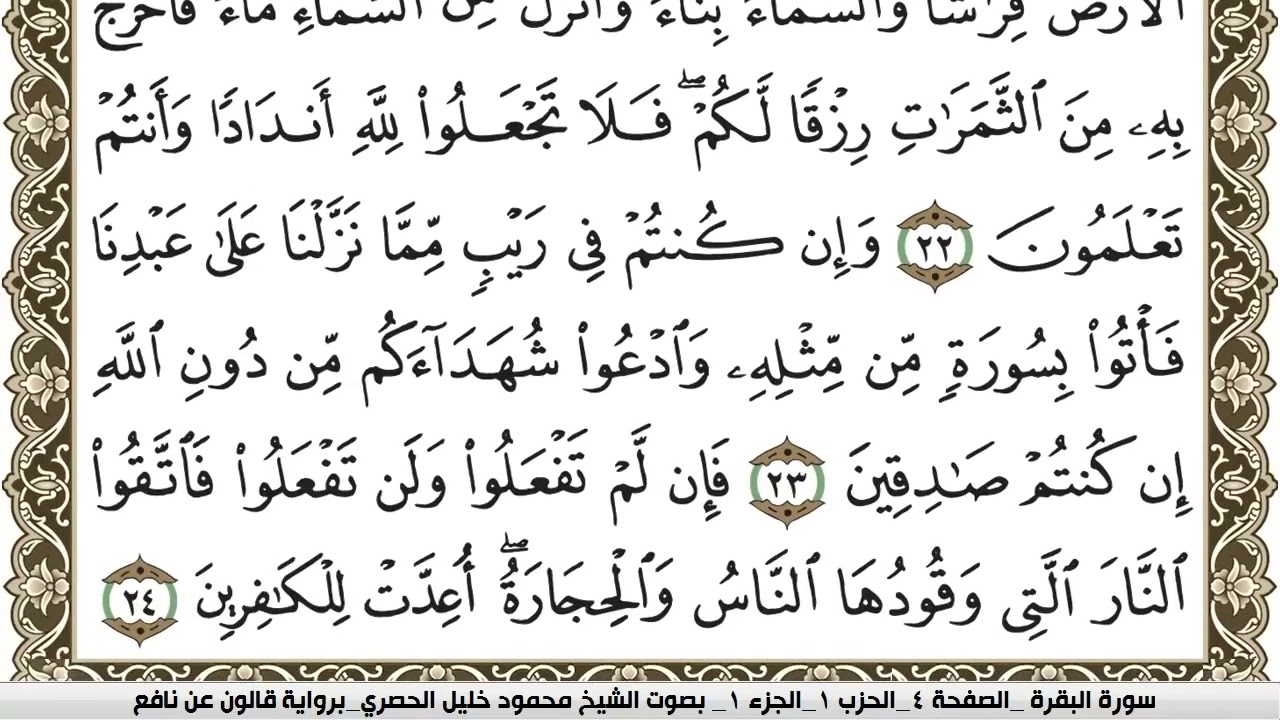 الْأَرْضَ فِرَٰشًا وَالسَّمَاءَ بِنَاءً وَأَنزَلَ مِنَ السَّمَاءِ مَاءً فَأَخْرَجَ
بِهِۦ مِنَ ٱلثَّمَرَٰتِ رِزْقًا لَّكُمْۖ فَلَا تَجْعَلُوا۟ لِلَّهِ أَندَادًا وَأَنتُمْ
تَعْلَمُونَ ٢٢ وَإِن كُنتُمْ فِي رَيْبٍ مِّمَّا نَزَّلْنَا عَلَىٰ عَبْدِنَا
فَأْتُوا۟ بِسُورَةٍ مِّن مِّثْلِهِۦ وَٱدْعُوا۟ شُهَدَآءَكُم مِّن دُونِ ٱللَّهِ
إِن كُنتُمْ صَٰدِقِينَ ٢٣ فَإِن لَّمْ تَفْعَلُوا۟ وَلَن تَفْعَلُوا۟ فَٱتَّقُوا۟
ٱلنَّارَ ٱلَّتِي وَقُودُهَا ٱلنَّاسُ وَٱلْحِجَارَةُۖ أُعِدَّتْ لِلْكَٰفِرِينَ ٢٤
سورة البقرة _الصفحة ٤_الحزب ١_الجزء ١_ بصوت الشيخ محمود خليل الحصري_برواية قالون عن نافع